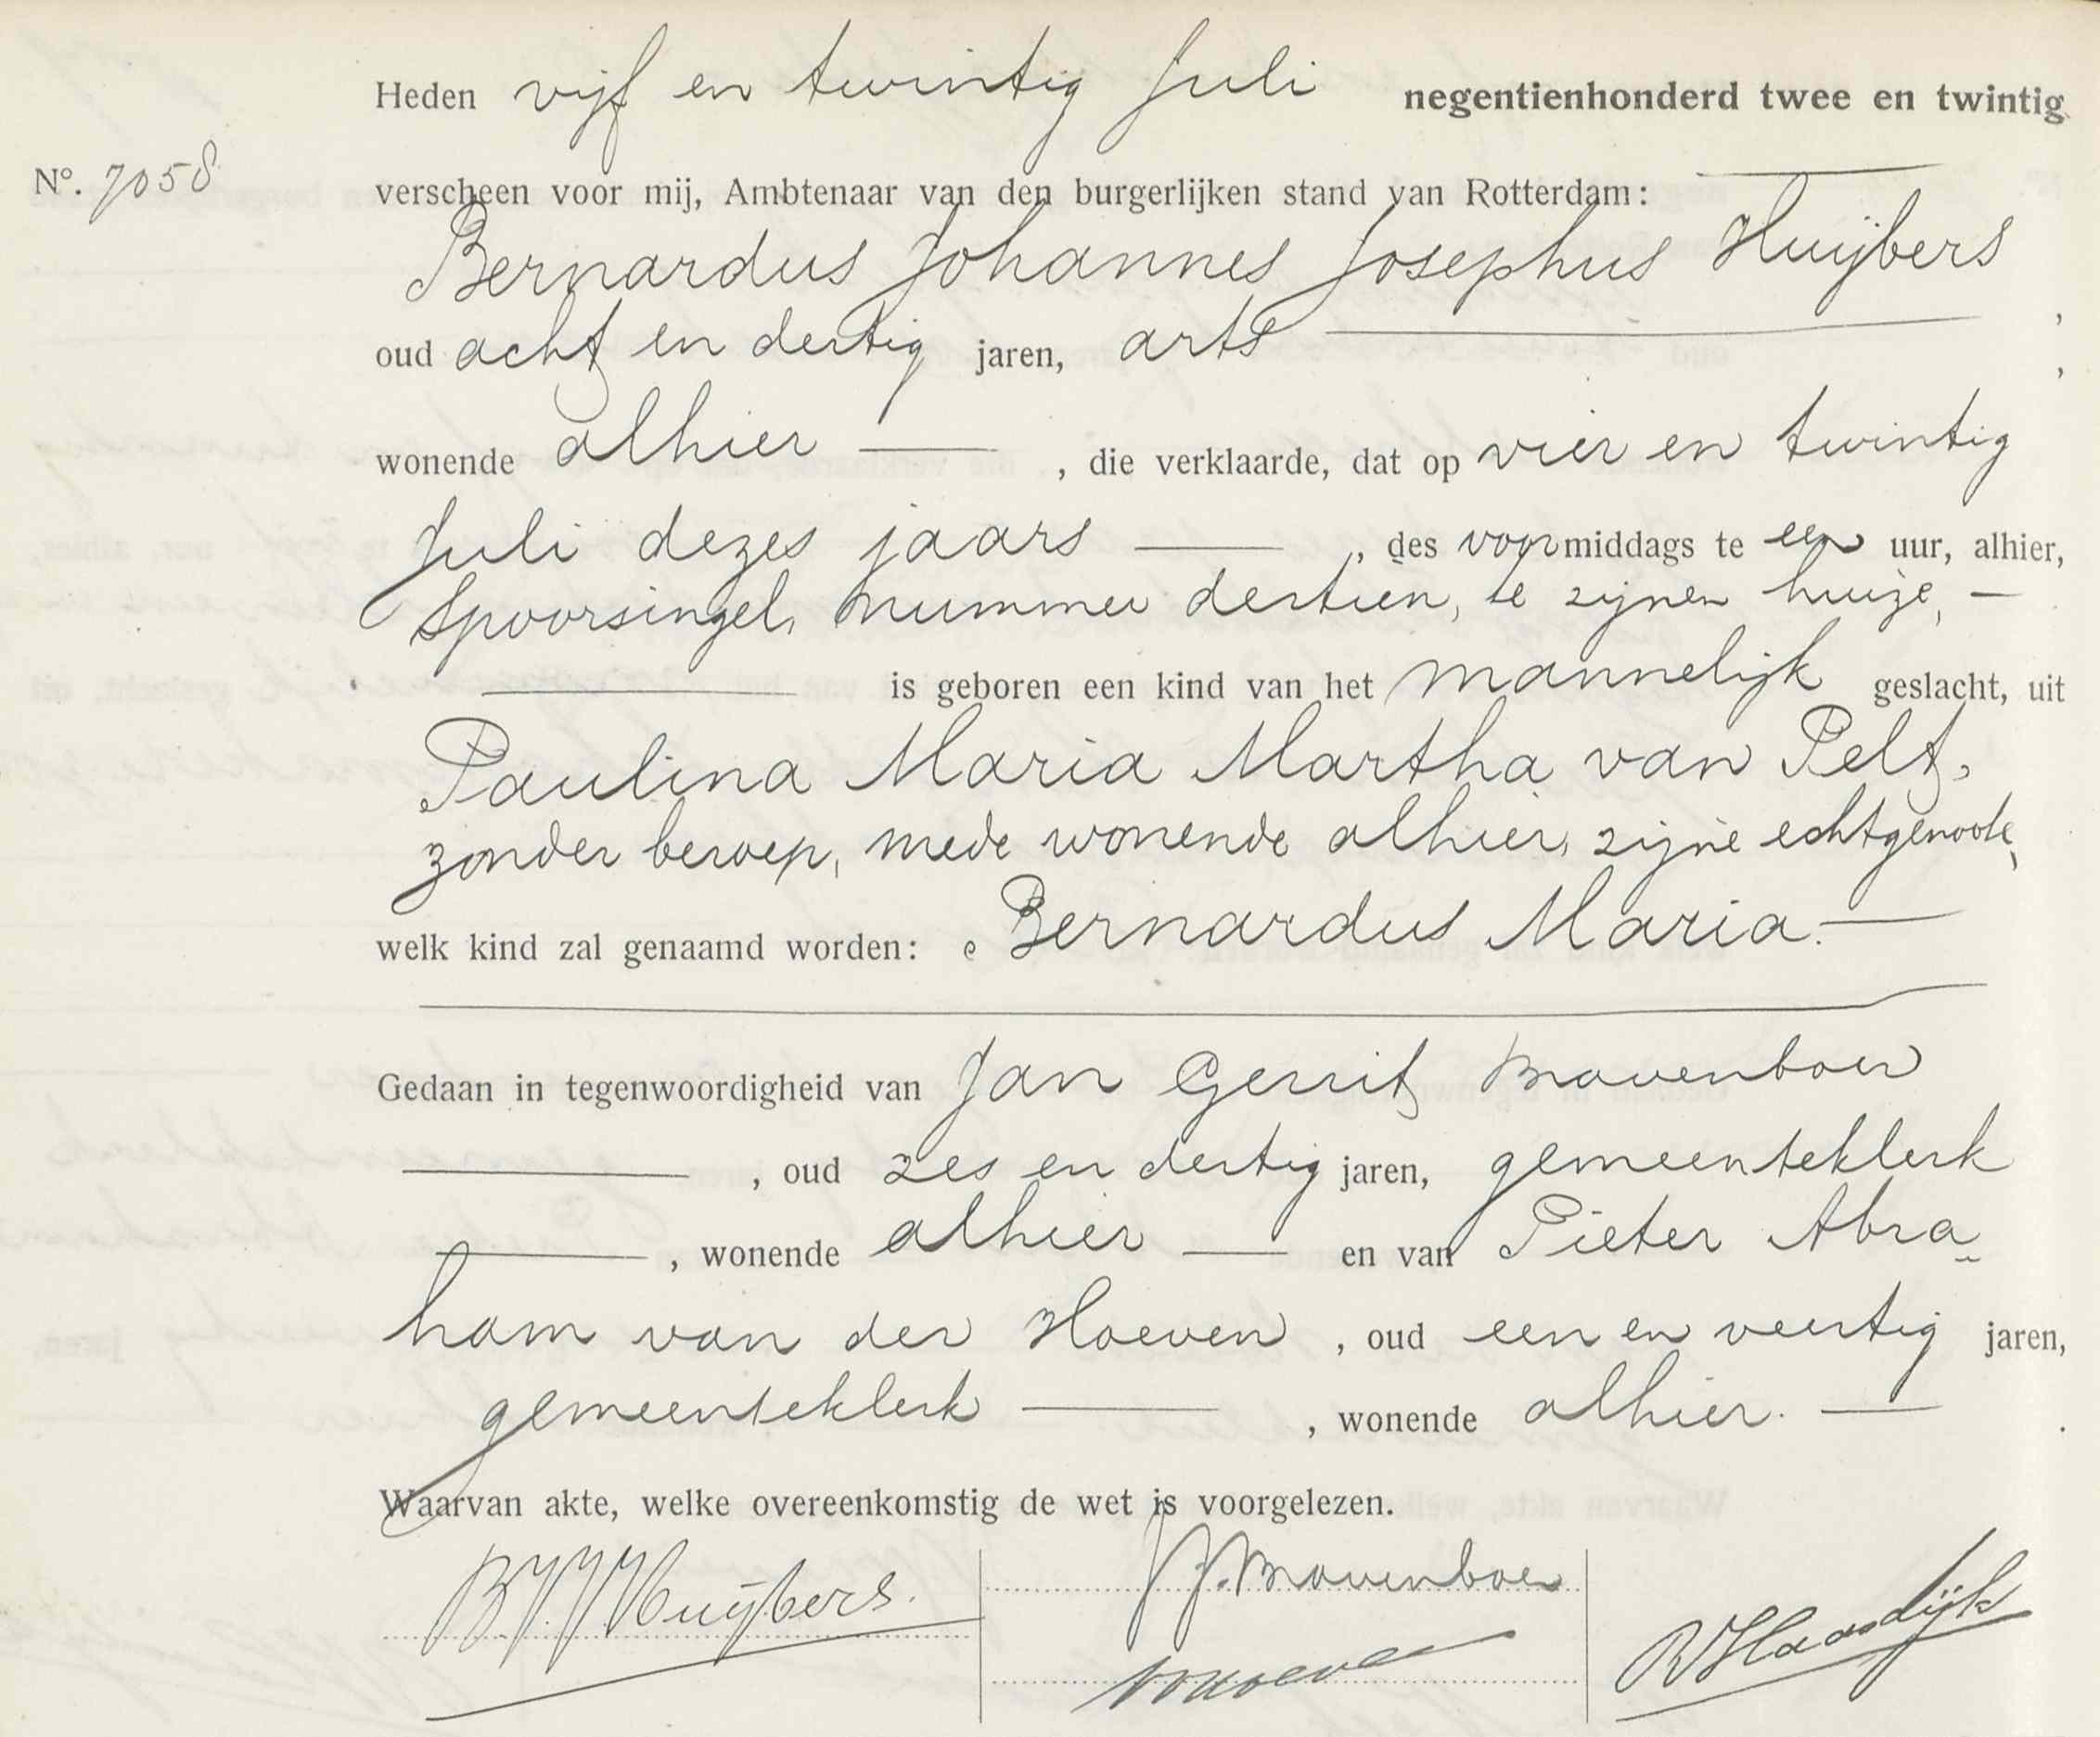 Heden vijf en twintig Juli negentienhonderd twee en twintig
Nº. 7058 verscheen voor mij, Ambtenaar van den burgerlijken stand van Rotterdam:
Bernardus Johannes Josephus Huijbers
oud acht en dertig jaren, arts ,
wonende alhier , die verklaarde, dat op vier en twintig
Juli dezes jaars , des voormiddags te een uur, alhier,
Spoorsingel, nummer dertien, te zijnen huize,
is geboren een kind van het mannelijk geslacht, uit
Paulina Maria Martha van Pelt,
zonder beroep, mede wonende alhier, zijne echtgenoote,
welk kind zal genaamd worden: Bernardus Maria.
Gedaan in tegenwoordigheid van Jan Gerrit Mouenboer
, oud zes en dertig jaren, gemeenteklerk
, wonende alhier en van Pieter Abra
ham van der Hoeven , oud een en veertig jaren,
gemeenteklerk , wonende alhier.
Waarvan akte, welke overeenkomstig de wet is voorgelezen.
BJJHuijbers. JG.Mouenboer